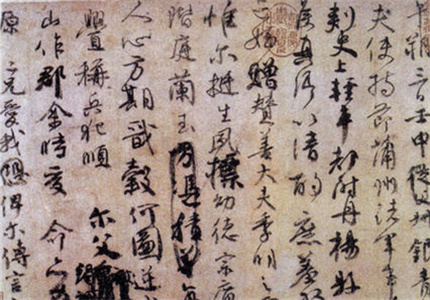 午朔三日壬申從父叔銀青
夫使持節蒲州諸軍事
刺史上輕車都尉丹楊縣
侯真卿以清酌庶羞祭
亡姪贈贊善大夫季明之
惟爾挺生夙標幼德宗廟
階庭蘭玉方憑積善每
人心方期戩穀何圖逆
釁稱兵犯順 爾父
山作郡余時受 命亦
原 仁兄愛我俾爾傳言